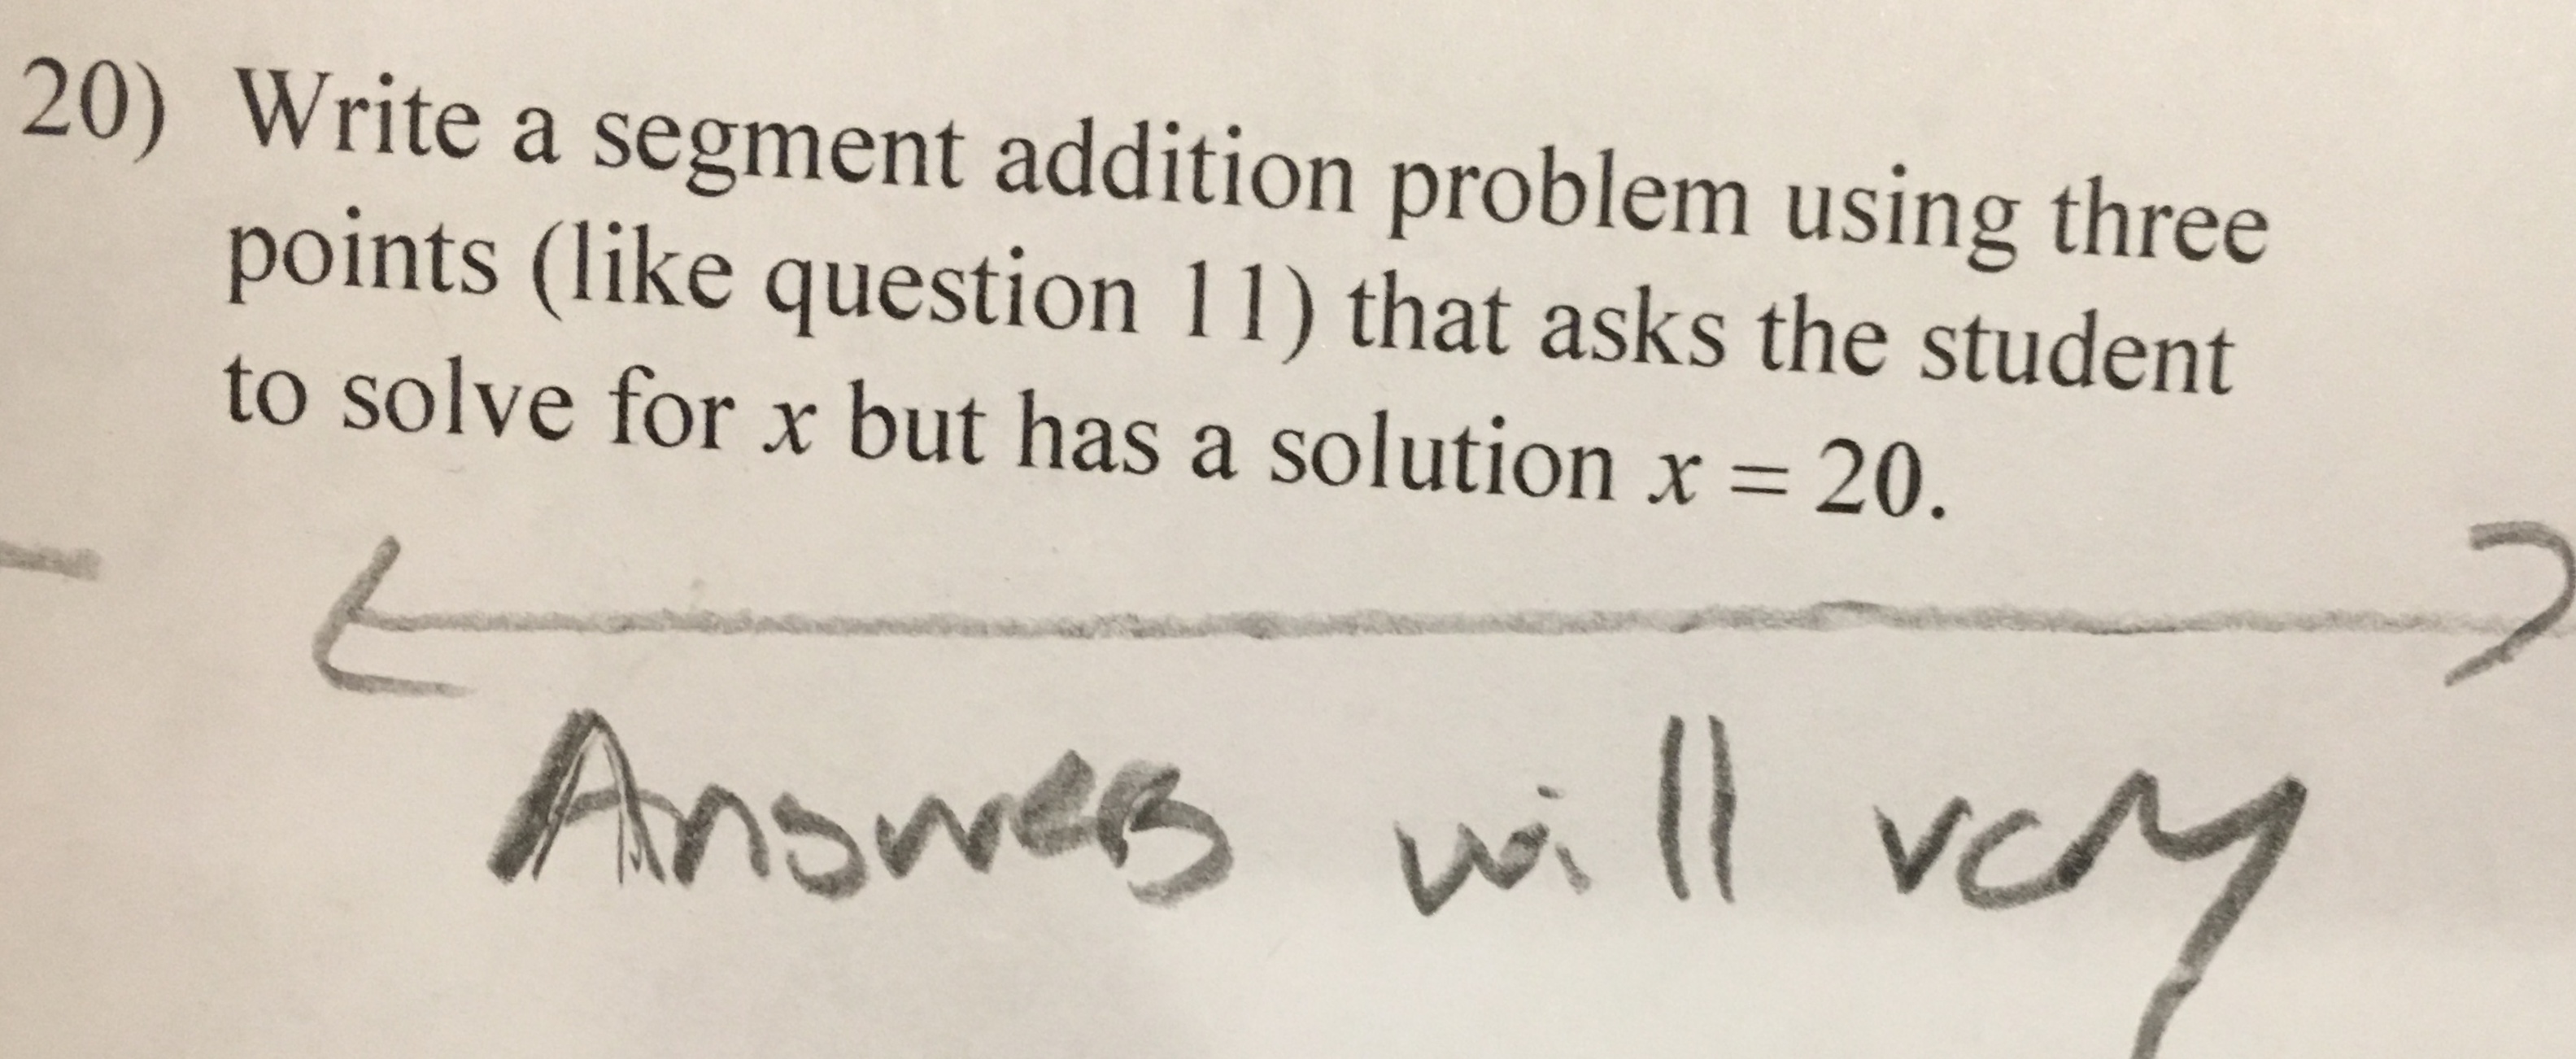 20) Write a segment addition problem using three
points (like question 11) that asks the student
to solve for x but has a solution x = 20.
Answers will vary